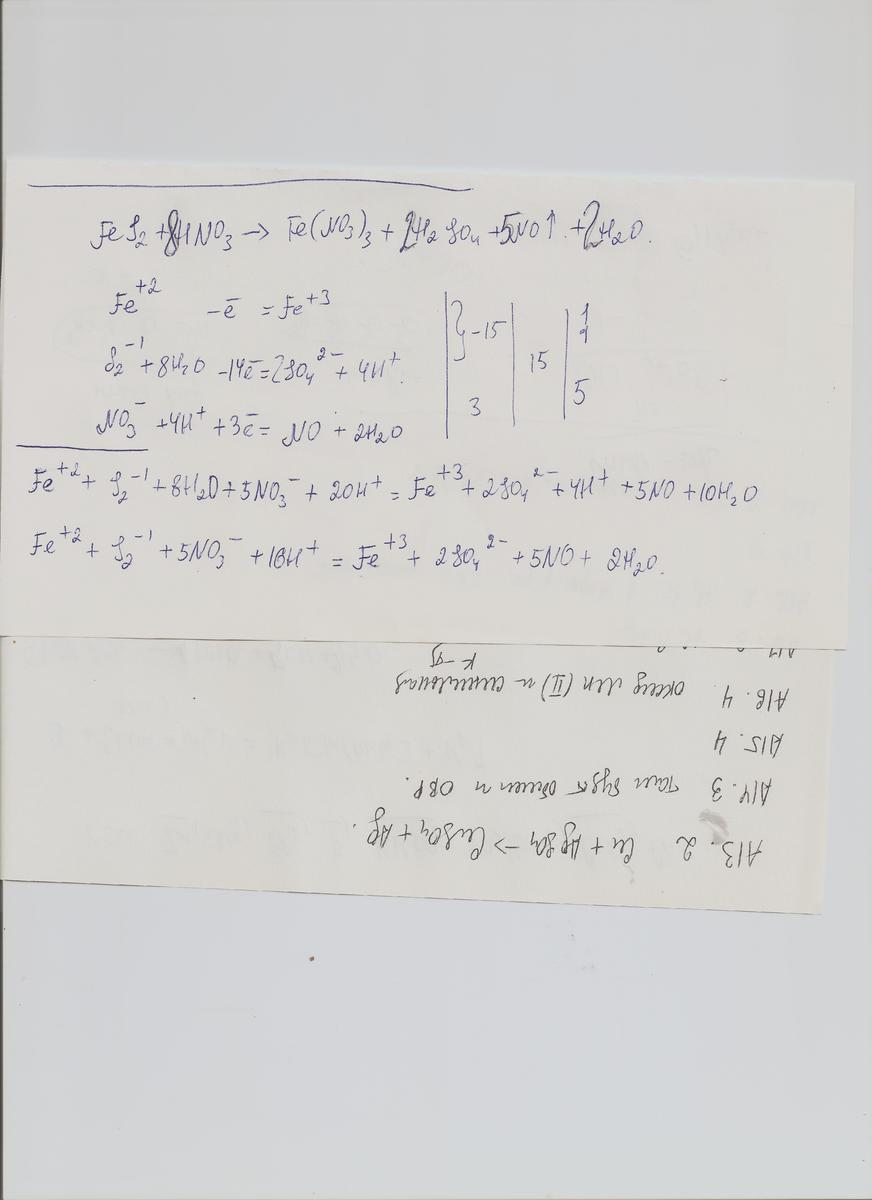 FeS₂ + 8HNO₃ → Fe(NO₃)₃ + 2H₂SO₄ + 5NO↑ + 2H₂O.
Fe⁺² -ē = Fe⁺³ } -15 | 15 | 1
S₂⁻¹ + 8H₂O - 14ē = 2SO₄²⁻ + 4H⁺. 1
NO₃⁻ + 4H⁺ + 3ē = NO + 2H₂O 3 5
Fe⁺² + S₂⁻¹ + 8H₂O + 5NO₃⁻ + 20H⁺ = Fe⁺³ + 2SO₄²⁻ + 4H⁺ + 5NO + 10H₂O
Fe⁺² + S₂⁻¹ + 5NO₃⁻ + 16H⁺ = Fe⁺³ + 2SO₄²⁻ + 5NO + 2H₂O.
A13. 2 Cu + AgSO₄ → CuSO₄ + Ag.
A14. 3 там будет обмен и ОВР.
A15. 4
A16. 4 оксид (II) и к-та